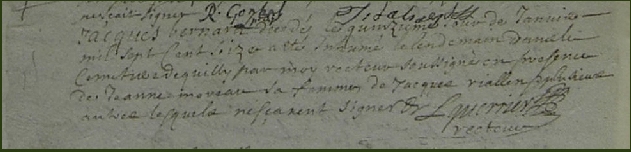 ne sçait signer
Jacques bernard decedé le quinzieme jour de Janvier
mil sept cent seize a eté inhumé le lendemain dans le
Cimetiere de quilly par moy recteur soussigné en presence
de Jeanne moreau sa femme de Jacques riallen plusieurs
autres lesquels ne sçavent signer
recteur